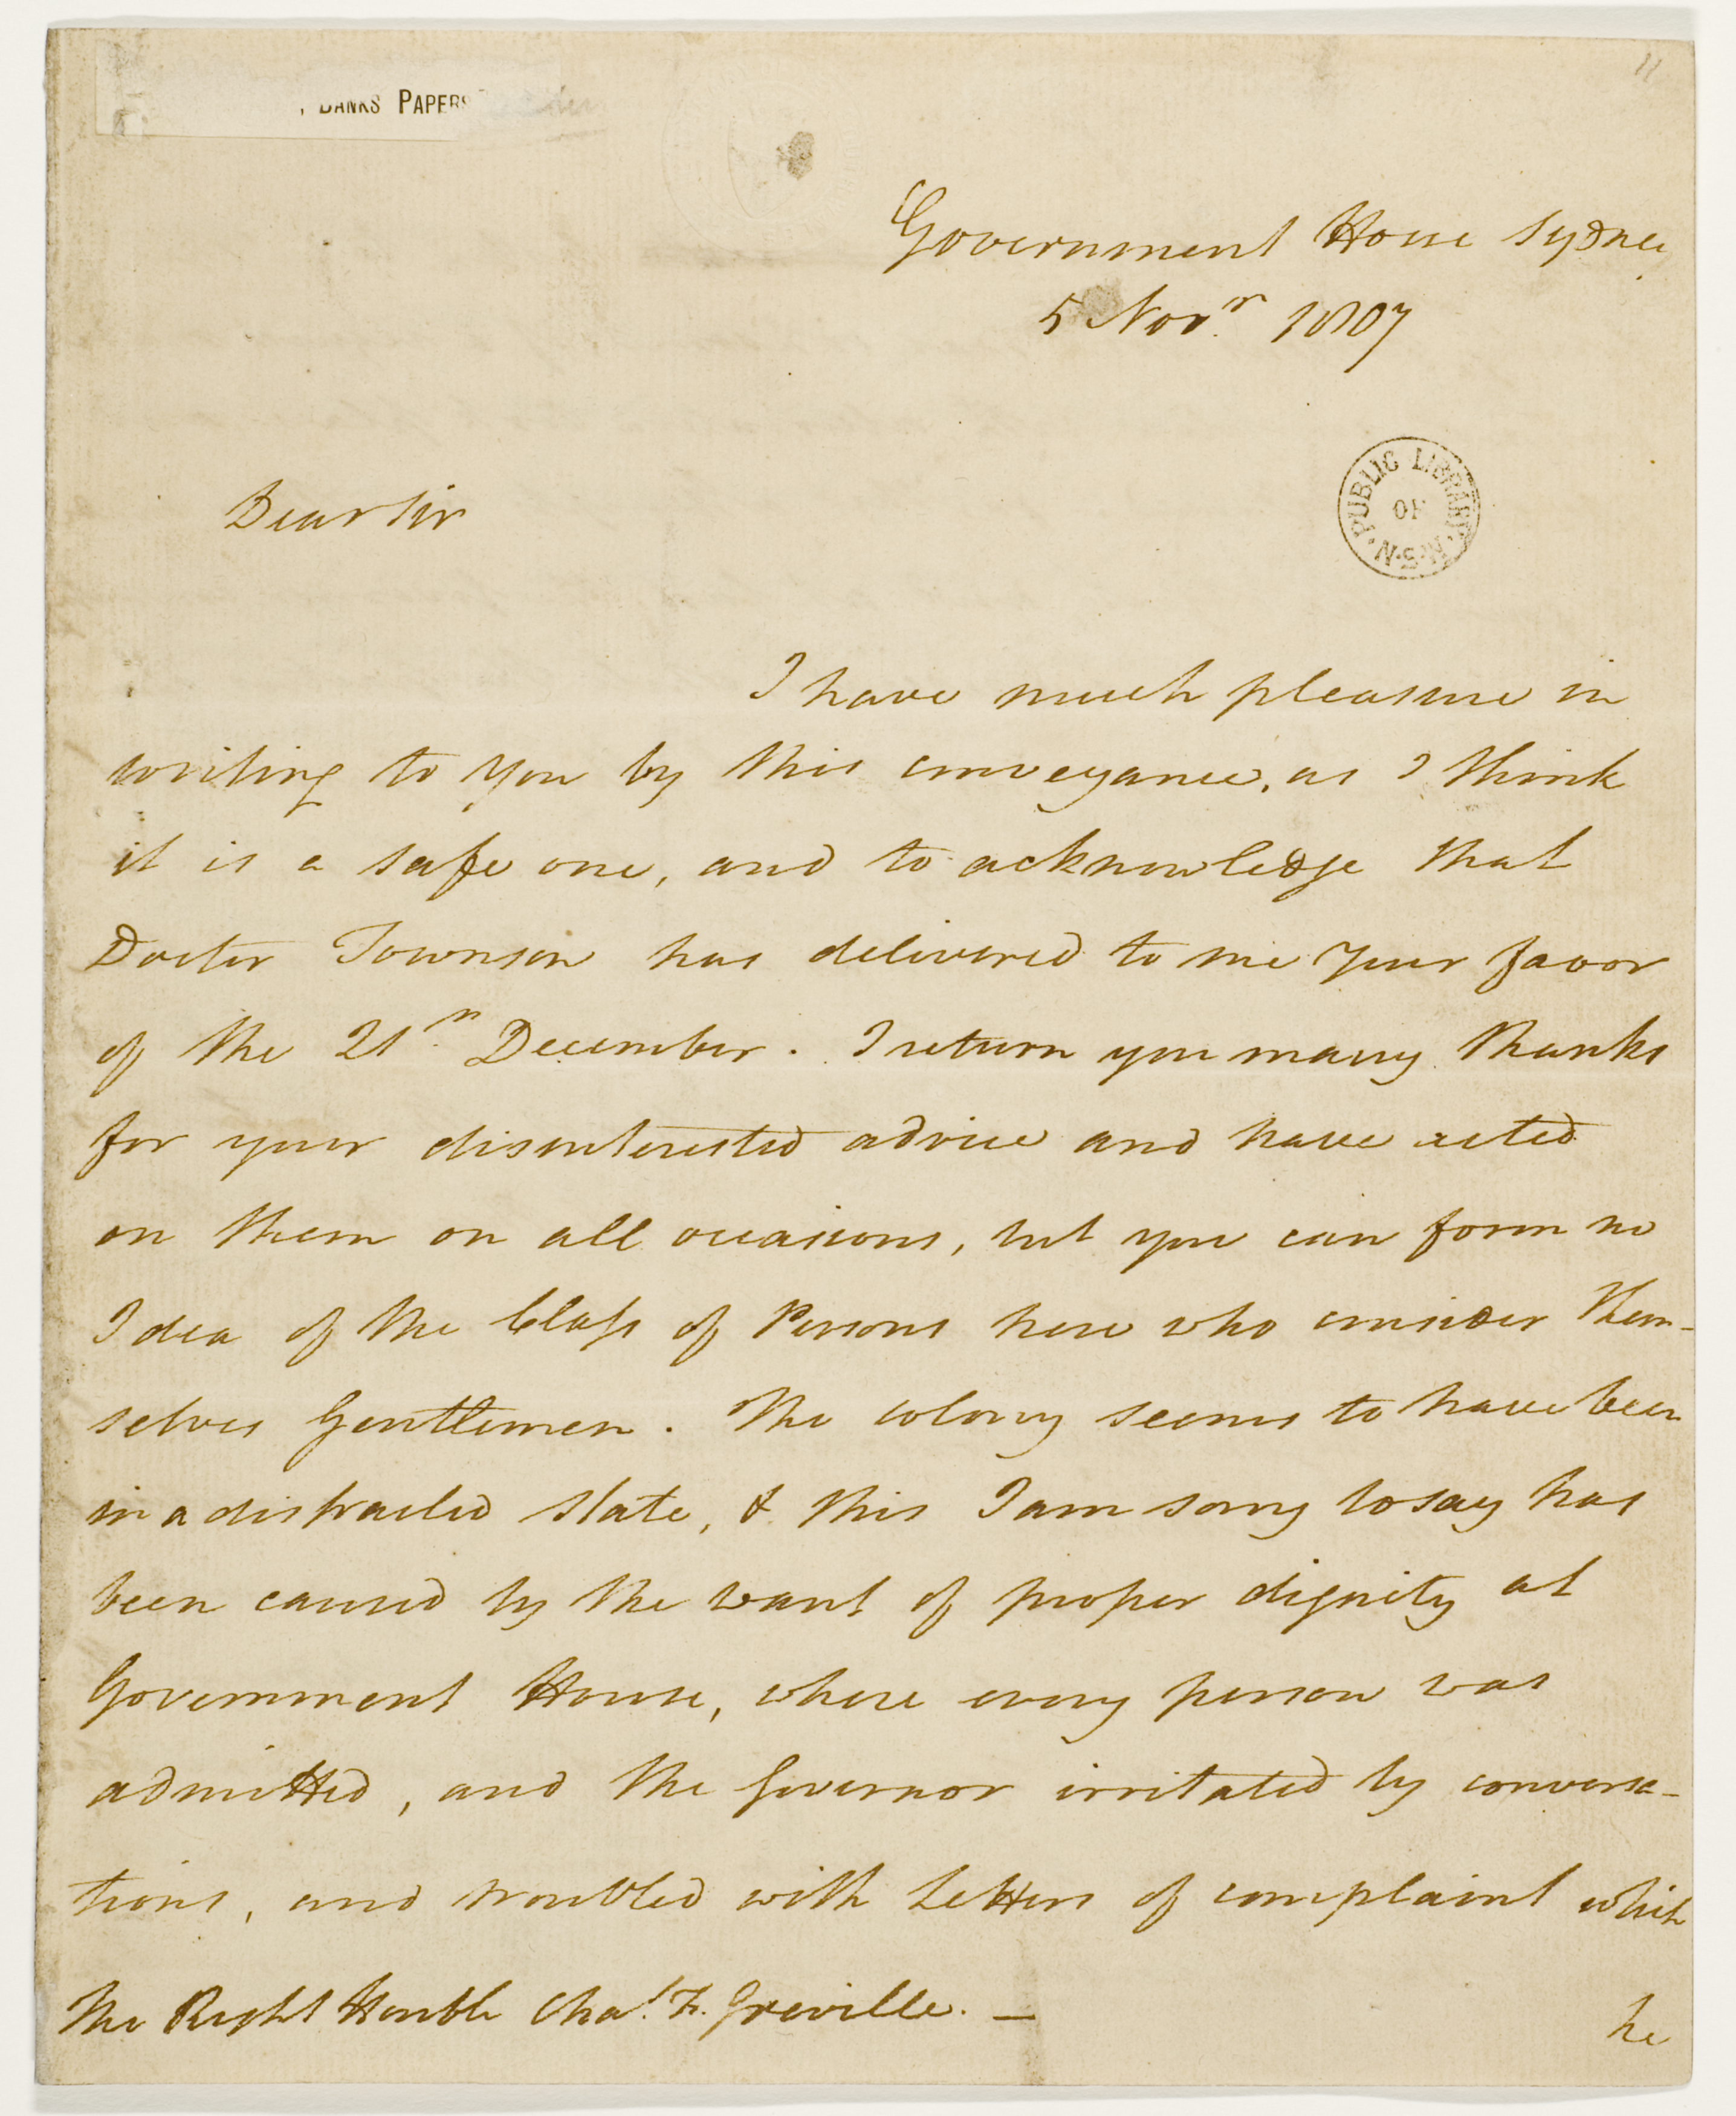 BANKS PAPERS
11
Government House Sydney
5 Novr. 1807
PUBLIC LIBRARY OF N.S.W.
Dear Sir
I have much pleasure in
writing to You by this conveyance, as I think
it is a safe one, and to acknowledge that
Doctor Townson has delivered to me Your favor
of the 21st. December. I return you many thanks
for your disinterested advice and have acted
on them on all occasions, but you can form no
Idea of the Class of Persons here who consider them-
selves Gentlemen. The colony seems to have been
in a distracted state, & this I am sorry to say has
been caused by the want of proper dignity at
Government House, where every person was
admitted, and the Governor irritated by conversa-
tions, and troubled with Letters of complaint which
The Right Honble Chas. F. Greville. —
he